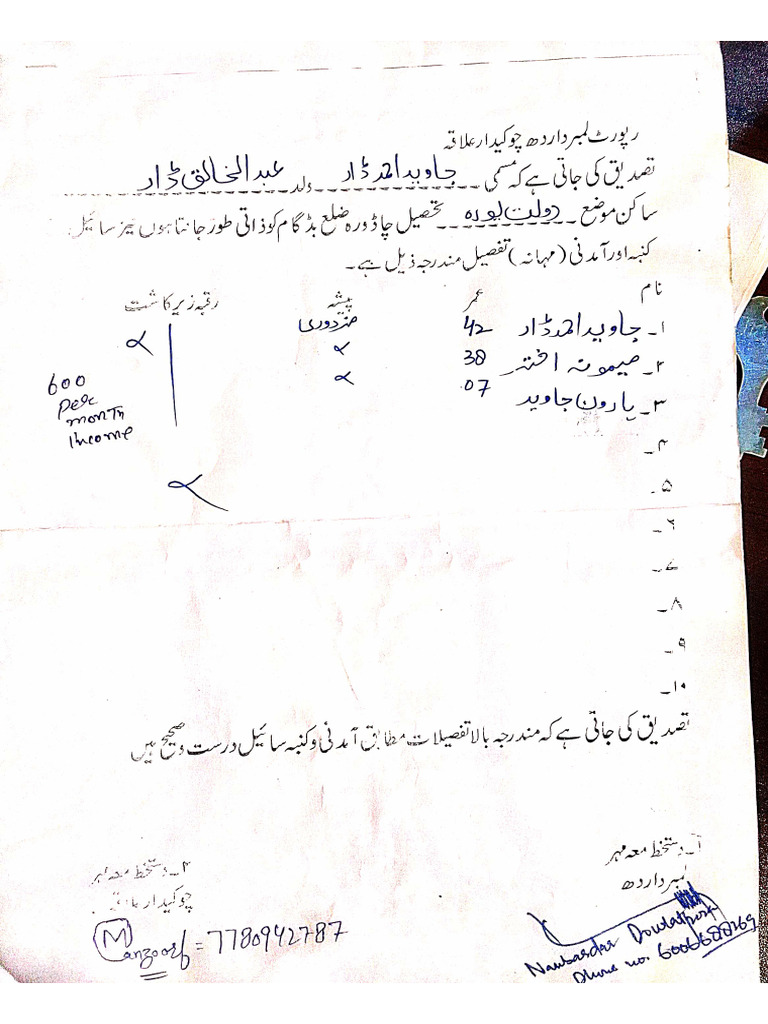 رپورٹ لمبردار دہ چوکیدار علاقہ
تصدیق کی جاتی ہے کہ مسمی جاوید احمد ڈار ولد عبدالخالق ڈار
ساکن موضع دولت پورہ تحصیل چاڈورہ ضلع بڈگام کو ذاتی طور جانتا ہوں نیز سائیل
کنبہ اور آمدنی (مہانہ) تفصیل مندرجہ ذیل ہے۔
نام عمر پیشہ رقبہ زیر کاشت
۱۔ جاوید احمد ڈار 42 مزدوری
۲۔ میمونہ اختر 38
۳۔ ہارون جاوید 07
600
Per
month
Income
۴۔
۵۔
۶۔
۷۔
۸۔
۹۔
۱۰۔
تصدیق کی جاتی ہے کہ مندرجہ بالا تفصیلات مطابق آمدنی و کنبہ سائیل درست و صحیح ہیں
۱۔ دستخط معہ مہر
لمبردار دہ
۲۔ دستخط معہ مہر
چوکیدار علاقہ
Manzoor = 7780942787
Nambardar Dowlatpora
Phone no.